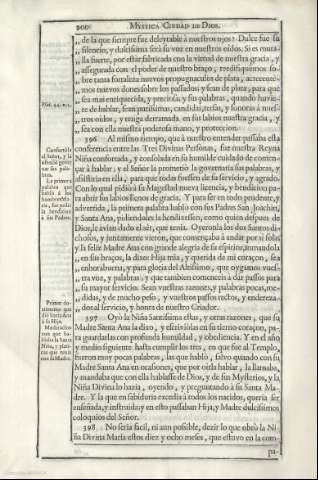 200. MYSTICA CIUDAD DE DIOS.
„ de la que siempre fue deleytable à nuestros ojos? Dulce fue su
„ silencio, y dulcissima serà su voz en nuestros oidos. Si es mura-
„ lla fuerte, por estàr fabricada con la virtud de nuestra gracia, y
„ assegurada con el poder de nuestro braço, reedifiquemos so-
„ bre tanta fortaleza nuevos propugnaculos de plata, acrecente-
„ mos nuevos dones sobre los passados; y sean de plata, para que
„ sea mas enriquecida, y preciosa, y sus palabras, quando huvie-
„ re de hablar, sean purissimas, candidas, tersas, y sonoras à nues-
„ tros oidos, y tenga derramada en sus labios nuestra gracia, y
„ sea con ella nuestra poderosa mano, y proteccion.
396 Al mismo tiempo, que à nuestro entender passaba esta
conferencia entre las Tres Divinas Personas, fue nuestra Reyna
Niña confortada, y consolada en su humilde cuidado de comen-
çar à hablar, y el Señor la prometiò la governaria sus palabras, y
assistiria en ella, para que todas fuessen de su servicio, y agrado.
Con lo qual pidiò à su Magestad nueva licencia, y bendicion pa-
ra abrir sus labios llenos de gracia. Y para ser en todo prudente, y
advertida, la primera palabra hablò con sus Padres San Joachin,
y Santa Ana, pidiendoles la bendicion, como quien despues de
Dios, le avian dado el sèr, que tenia. Oyeronla los dos Santos di-
chosos, y juntamente vieron, que començaba à andar por sì sola:
y la feliz Madre Ana con grande alegria de su espiritu, tomandola
en sus braços, la dixo: Hija mia, y querida de mi coraçon, sea
enhorabuena, y para gloria del Altissimo, que oygamos vues-
tra voz, y palabras; y que tambien comenceis à dàr passos para
su mayor servicio. Sean vuestras razones, y palabras pocas, me-
didas, y de mucho peso, y vuestros passos rectos, y endereza-
dos al servicio, y honra de nuestro Criador.
397 Oyò la Niña Santissima estas, y otras razones, que su
Madre Santa Ana la dixo, y escriviòlas en su tierno coraçon, pa-
ra guardarlas con profunda humildad, y obediencia. Y en el año
y medio siguiente hasta cumplir los tres, en que fue al Templo,
fueron muy pocas palabras, las que hablò, salvo quando con su
Madre Santa Ana en ocasiones, que por oirla hablar, la llamaba,
y mandaba que con ella hablasse de Dios, y de sus Mysterios, y la
Niña Divina lo hazia, oyendo, y preguntando à su Santa Ma-
dre. Y la que en sabiduria excedia à todos los nacidos, queria ser
enseñada, y instruida; y en esto passaban Hija, y Madre dulcissimos
coloquios del Señor.
398 No seria facil, ni aun possible, dezir lo que obrò la Ni-
ña Divina Maria estos diez y ocho meses, que estuvo en la com-
pa-